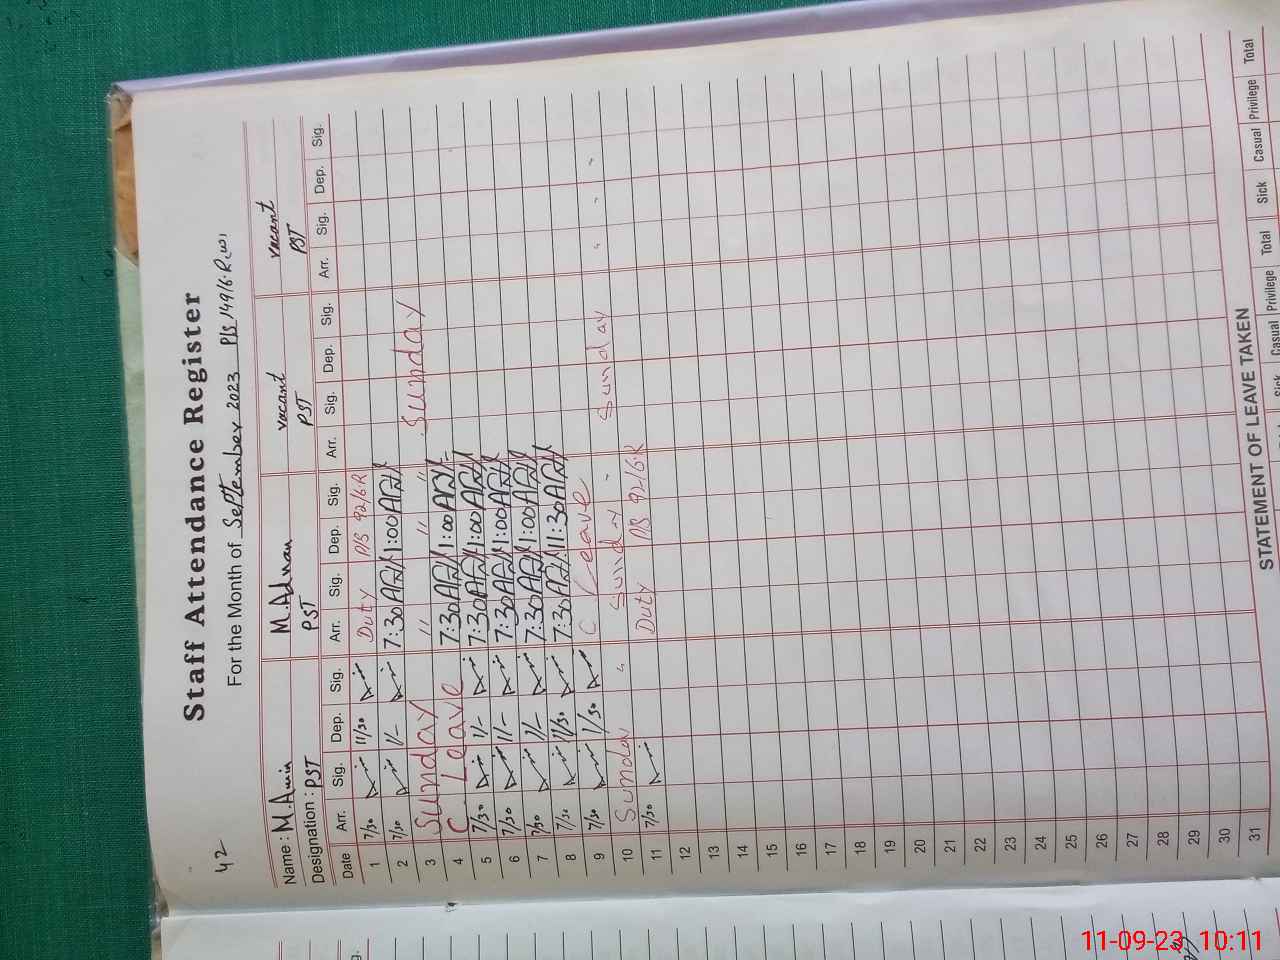 42
Staff Attendance Register
For the Month of September 2023 P/S 149/6.R (W)
Name : M.Amin M.Adnan vacant vacant
Designation : PST PST PST PST
Date Arr. Sig. Dep. Sig. Arr. Sig. Dep. Sig. Arr. Sig. Dep. Sig. Arr. Sig. Dep. Sig.
1 7/30 11/30 Duty P/S 92/6.R
2 7/30 1/- 7:30 1:00
3 Sunday " " " Sunday
4 C. Leave 7:30 1:00
5 7/30 1/- 7:30 1:00
6 7/30 1/- 7:30 1:00
7 7/30 1/- 7:30 1:00
8 7/30 11/30 7:30 11:30
9 7/30 1/30 C Leave
10 Sunday " Sunday Sunday
11 7/30 Duty P/S 92/6.R
12
13
14
15
16
17
18
19
20
21
22
23
24
25
26
27
28
29
30
31
STATEMENT OF LEAVE TAKEN
Sick Casual Privilege Total Sick Casual Privilege Total
11-09-23 10:11